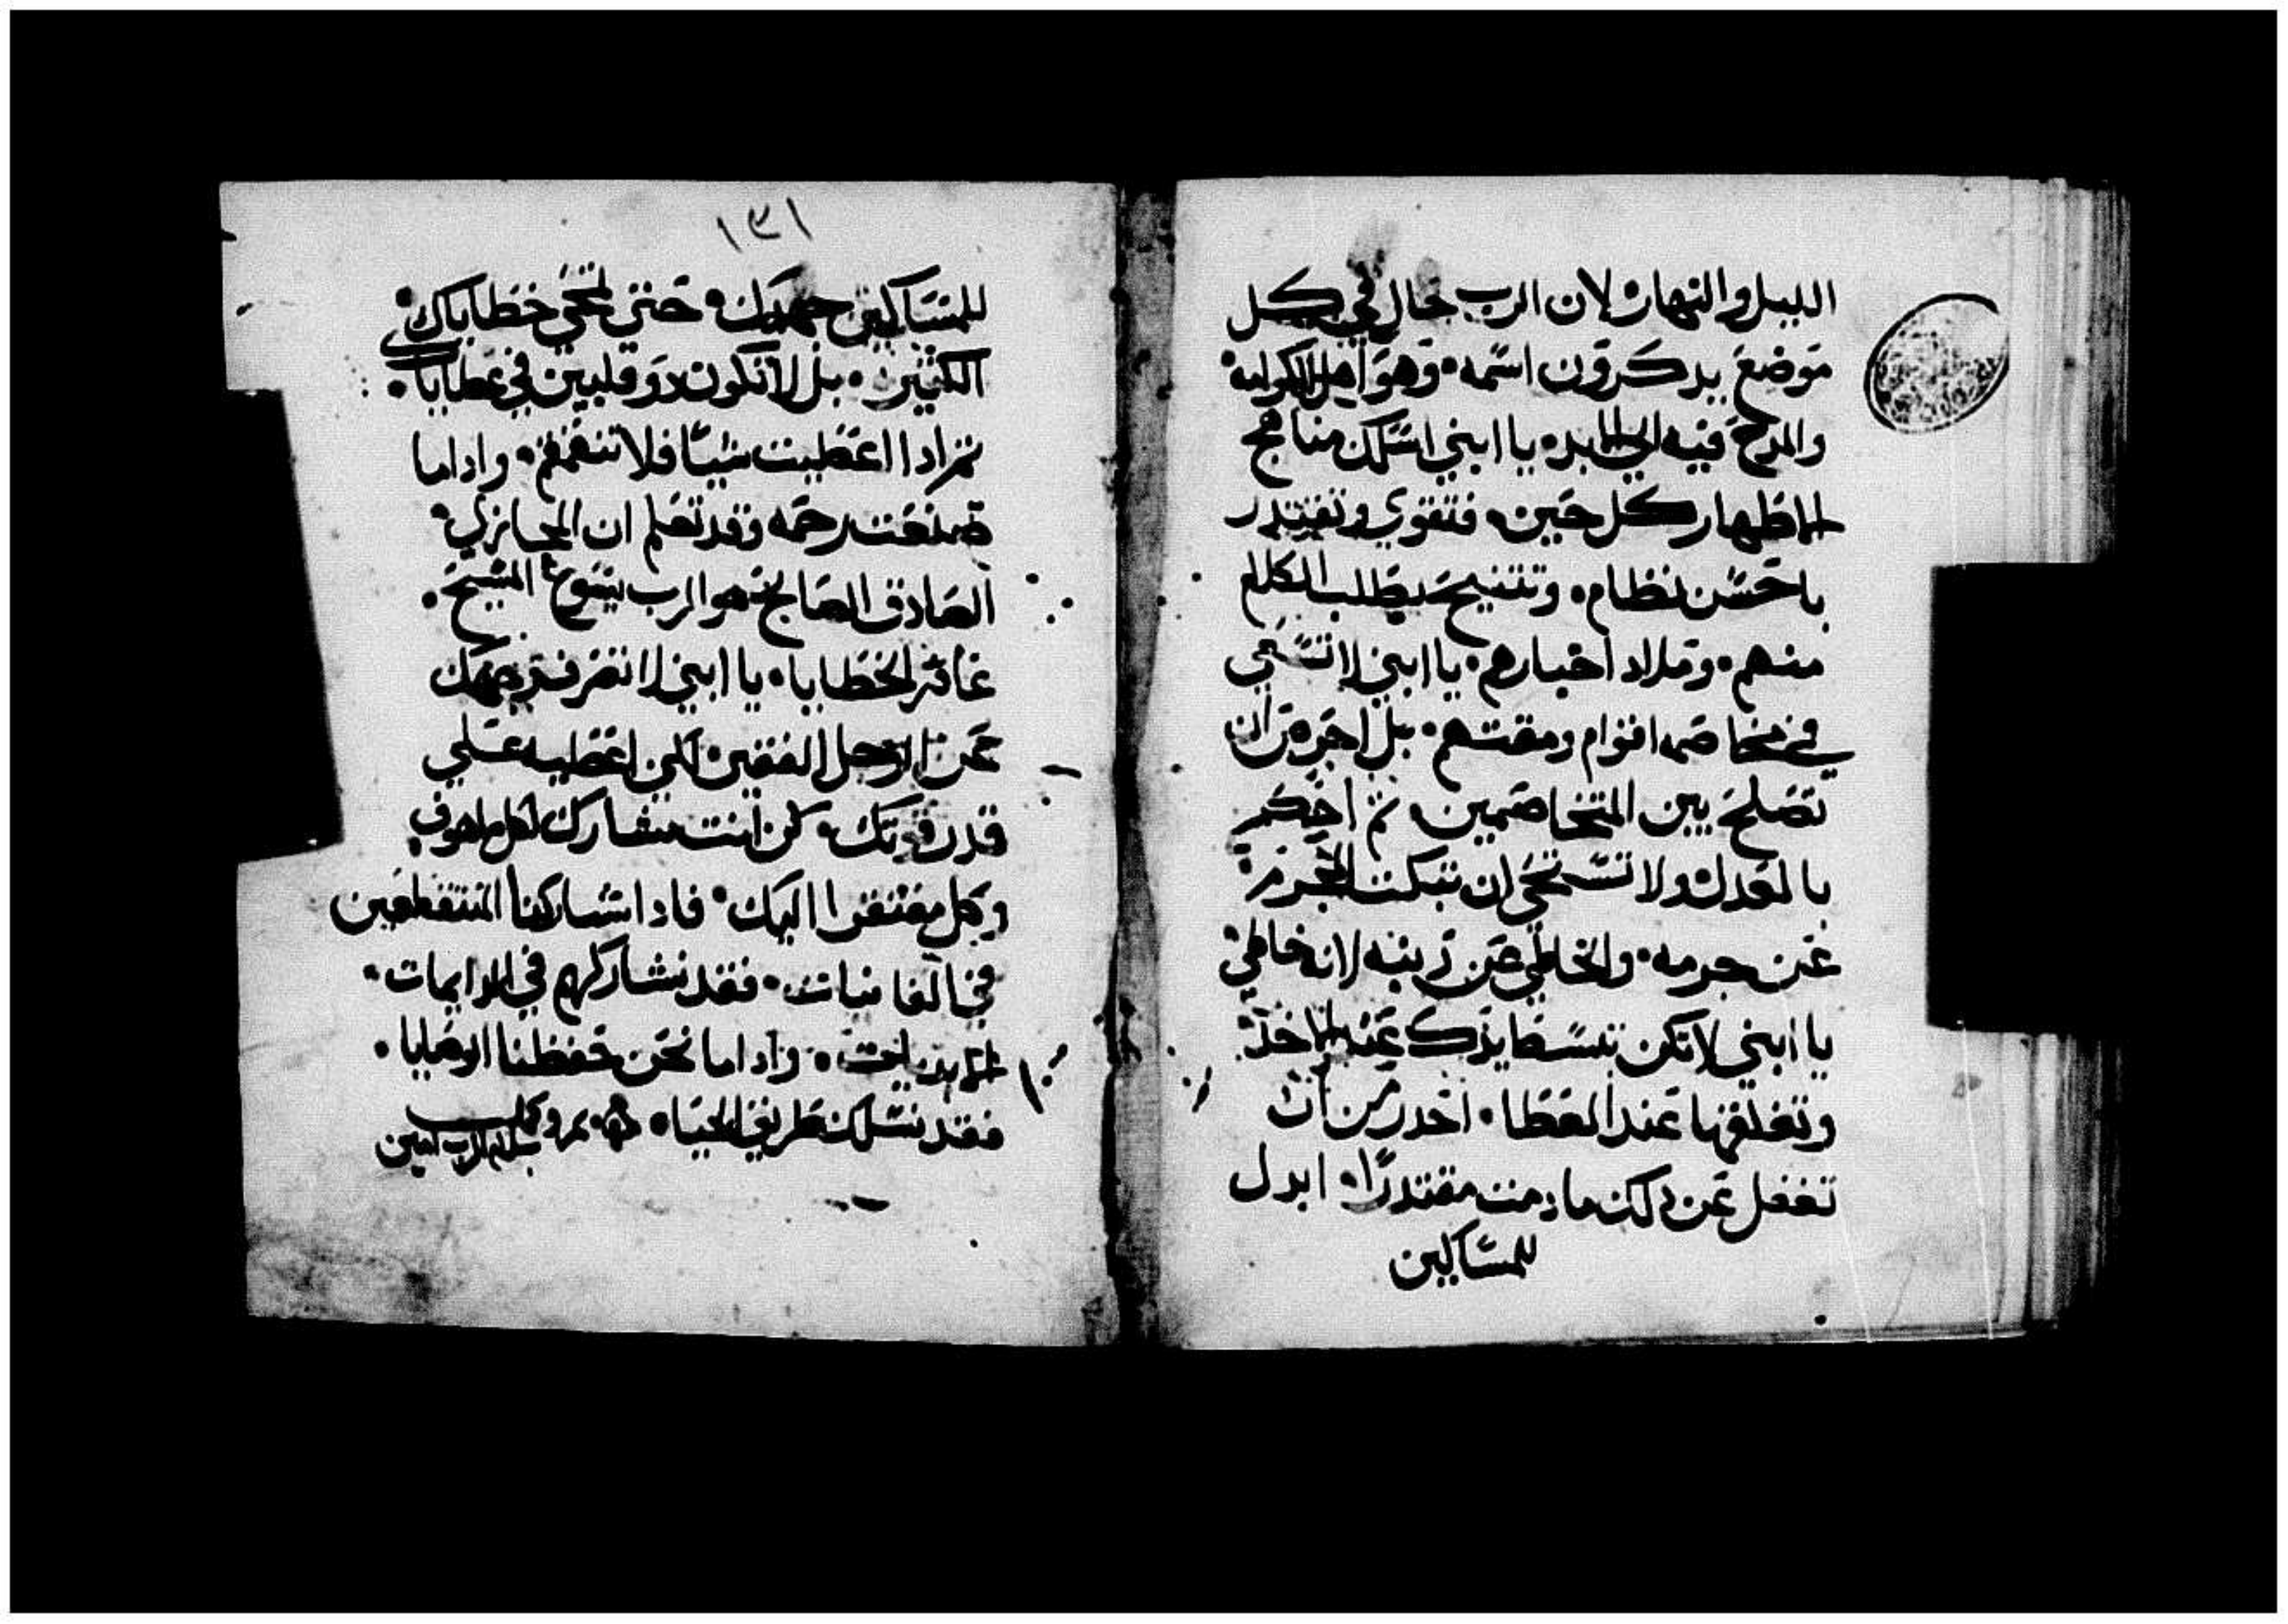 الليل والنهار لان الرب حال في كل
موضع يدكرون اسمه وهو اهل الكرامه
والمدح فيه الي الابد يا ابني اسلك مناهج
الاطهار كل حين فتقوي وتقتدر
باحسن نظام وتتنيح بطلب الكلام
منهم وتلاد اخبارهم يا ابني لا تسعي
في مخاصمه اقوام ومقتهم بل احرص ان
تصلح بين المتخاصمين تم احكم
بالعدل ولا تستحي ان تبكت المجرم
عن جرمه والخاطي عن زينه لانه خاطي
يا ابني لا تكن تبسط يدك عند الاخد
وتغلقها عند العطا احدر من ان
تغفل عن دلك ما دمت مقتدرا ابدل
للمساكين
١٣١
للمساكين جهدك حتي تمحي خطاياك
الكتيره بل لا تكون دو قلبين في عطاياك
تم ادا اعطيت شيا فلا تتقمقم وادا ما
صنعت رحمه وقد تعلم ان المجازي
الصادق الصالح هو الرب يسوع المسيح
غافر الخطايا يا ابني لا تصرف وجهك
عن الرجل الفقير لكن اعطيه علي
قدر قوتك كن انت مشارك لكل ملهوف
وكل مفتقر اليك فادا شاركنا المنقطعين
في الفانيات فقد نشاركهم في الدايمات
الابديات وادا ما نحن حفظنا الوصايا
فقد نسلك طريق الحياه تم وكمل
بسلام الرب امين